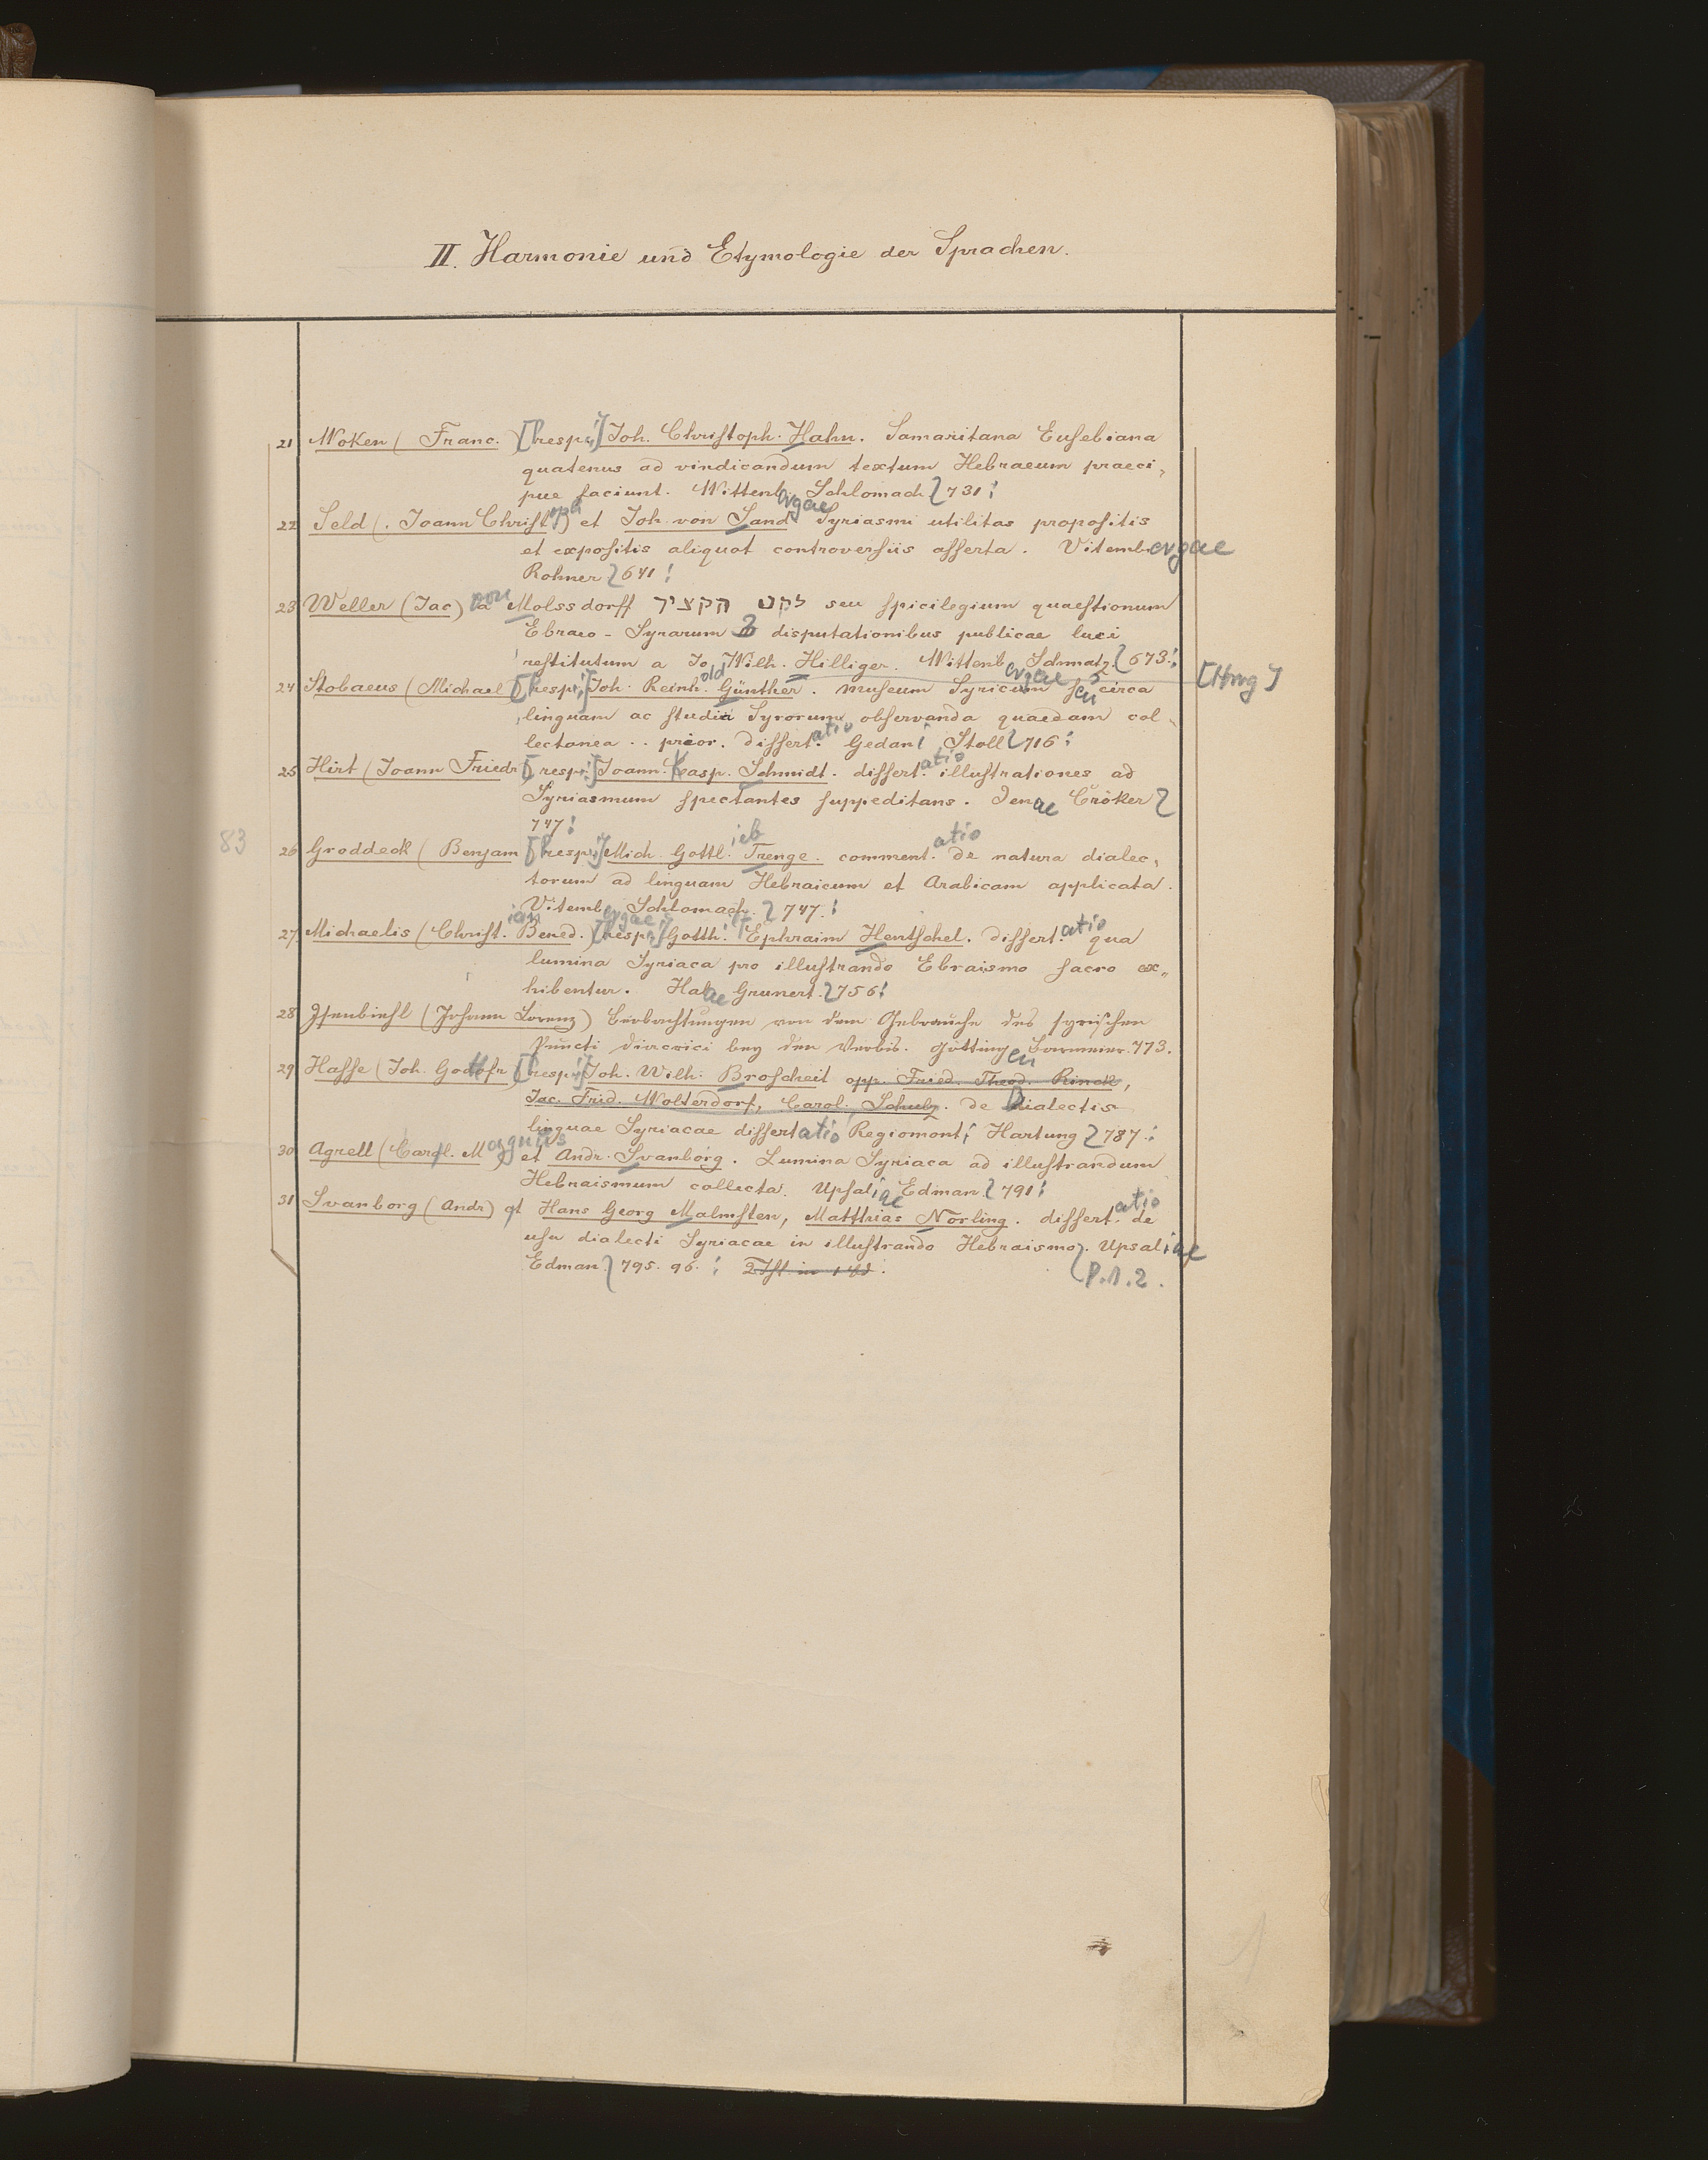 II. Harmonie und Etymologie der Sprachen.
21 Woken (Franc.) [resp:] Joh. Christoph. Hahn. Samaritana Eusebiana
quatenus ad vindicandum textum Hebraeum praeci-
pue faciunt. Wittenbergae Schlomach 731.
22 Seld (Joann Christoph) et Joh. von Sand Syriasmi utilitas propositis
et expositis aliquot controversiis asserta. Vitembergae
Rohner 641.
23 Weller (Jac) von Molssdorff לקט הקציר seu spicilegium quaestionum
Ebraeo-Syrarum disputationibus publicae luci
restitutum a Jo Wilh. Hilliger. Wittenbergae Schmatz. 673.
[Hrsg]
24 Stobaeus (Michael) [resp:] Joh. Reinhold Günther. Museum Syricum seu circa
linguam ac studia Syrorum observanda quaedam col-
lectanea .. prior. dissertatio Gedani Stoll 716.
25 Hirt (Joann Friedr) [resp:] Joann. Casp. Schmidt. dissertatio illustrationes ad
Syriasmum spectantes suppeditans. Jenae Cröker
747.
83
26 Groddeck (Benjam) [resp:] Mich. Gottlieb Trenge. commentatio de natura dialec-
torum ad linguam Hebraicum et Arabicam applicata.
Vitembergae Schlomach. 747.
27 Michaelis (Christian Bened.) [resp:] Gotth. Ephraim Hentschel. dissertatio qua
lumina Syriaca pro illustrando Ebraismo sacro ex-
hibentur. Halae Grunert. 756.
28 Isenbiehl (Johann Lorenz) Beobachtungen von dem Gebrauche des syrischen
Puncti diacritici bey den Verbis. Göttingen Barmeier. 773.
29 Hasse (Joh. Gottfr) [resp:] Joh. Wilh. Broscheit opp. Fried. Theod. Rinck,
Jac. Frid. Wolterdorf, Carol. Schulz. de Dialectis
linguae Syriacae dissertatio Regiomonti Hartung 787.
30 Agrell (Carl. Magnus) et Andr. Svanborg. Lumina Syriaca ad illustrandum
Hebraismum collecta. Upsaliae Edman. 791.
31 Svanborg (Andr) et Hans Georg Malmsten, Matthias Norling. dissertatio de
usu dialecti Syriacae in illustrando Hebraismo. Upsaliae
Edman. 795. 96. P.1.2.